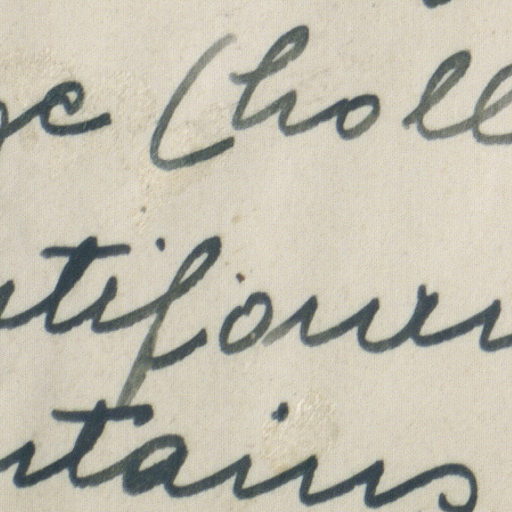 ge (holl
utifour
ntains